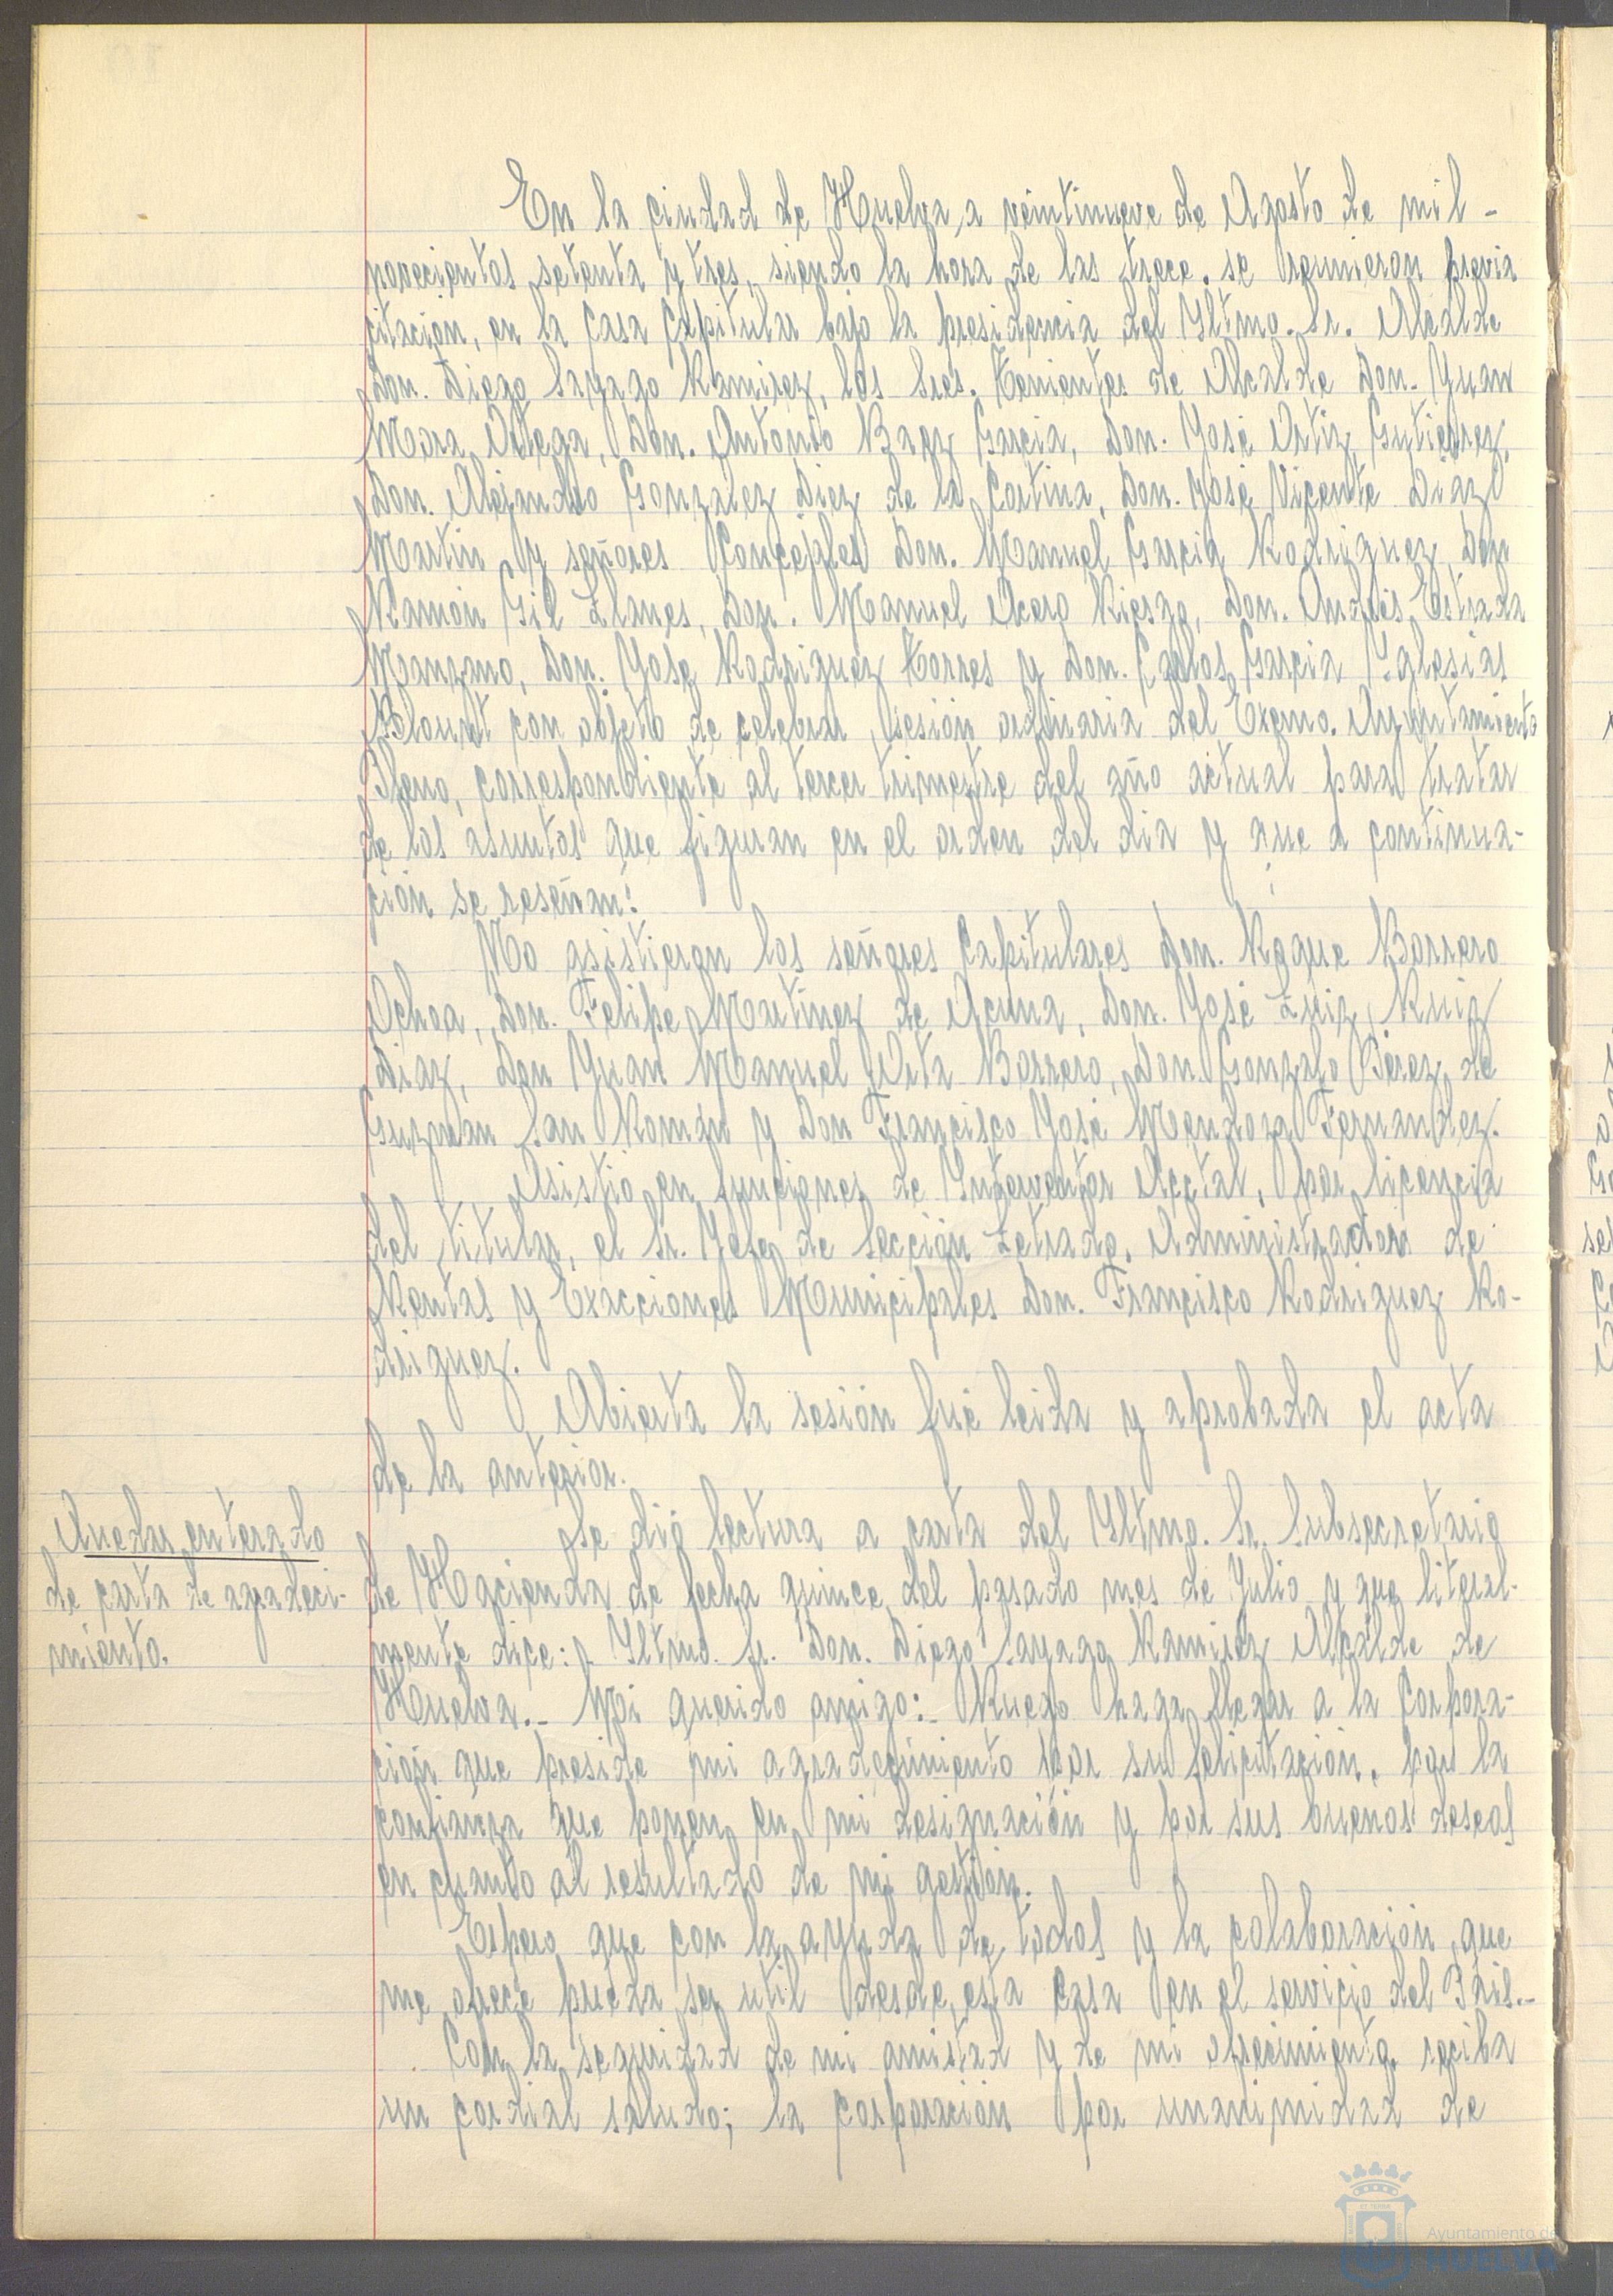 En la ciudad de Huelva, a veintinueve de Agosto de mil -
novecientos setenta y tres, siendo la hora de las trece, se reunieron previa
citación, en la Casa Capitular bajo la presidencia del Yltmo. Sr. Alcalde
Don. Diego Sayago Ramirez, los Sres. Tenientes de Alcalde Don. Juan
Mora Ortega, Don. Antonio Baez Garcia, Don. José Ortiz Gutiérrez,
Don. Alejandro Gonzalez Diez de la Cortina, Don. José Vicente Diaz
Martín y señores Concejales Don. Manuel Garcia Rodriguez, Don
Ramón Gil Llanes, Don. Manuel Acero Riesgo, Don. Andrés Estrada
Manzano, Don. Jose Rodriguez Torres y Don. Carlos Garcia Yglesias
Blount con objeto de celebrar sesión ordinaria del Excmo. Ayuntamiento
Pleno, correspondiente al tercer trimestre del año actual para tratar
de los asuntos que figuran en el orden del dia y que a continua-
ción se reseñan:
No asistieron los señores Capitulares Don. Roque Barrero
Ochoa, Don. Felipe Martínez de Acuna, Don. José Luiz Ruiz
Diaz, Don Juan Manuel Orta Barrero, Don. Gonzalo Pérez de
Guzmán San Román y Don Francisco José Mendoza Fernandez.
Asistió en funciones de Interventor Acctal, por licencia
del titular, el Sr. Jefe de Sección Letrado, Administrador de
Rentas y Exacciones Municipales Don. Francisco Rodriguez Ro-
driguez.
Abierta la sesión fué leida y aprobada el acta
de la anterior.
Quedar enterado
de carta de agradeci-
miento.
Se dió lectura a carta del Yltmo. Sr. Subsecretario
de Hacienda de fecha quince del pasado mes de Julio y que literal-
mente dice: Yltmo. Sr. Don. Diego Sayago Ramirez Alcalde de
Huelva.- Mi querido amigo:- Ruego haga llegar a la Corpora-
ción que preside mi agradecimiento por su felicitación, por la
confianza que ponen en mi designación y por sus buenos deseos
en cuanto al resultado de mi gestión.
Espero que con la ayuda de todos y la colaboración que
me ofrece pueda ser util desde esta Casa en el servicio del País.-
Con la seguridad de mi amistad y de mi ofrecimiento, reciba
un cordial saludo; la corporación por unanimidad de
Ayuntamiento de
HUELVA